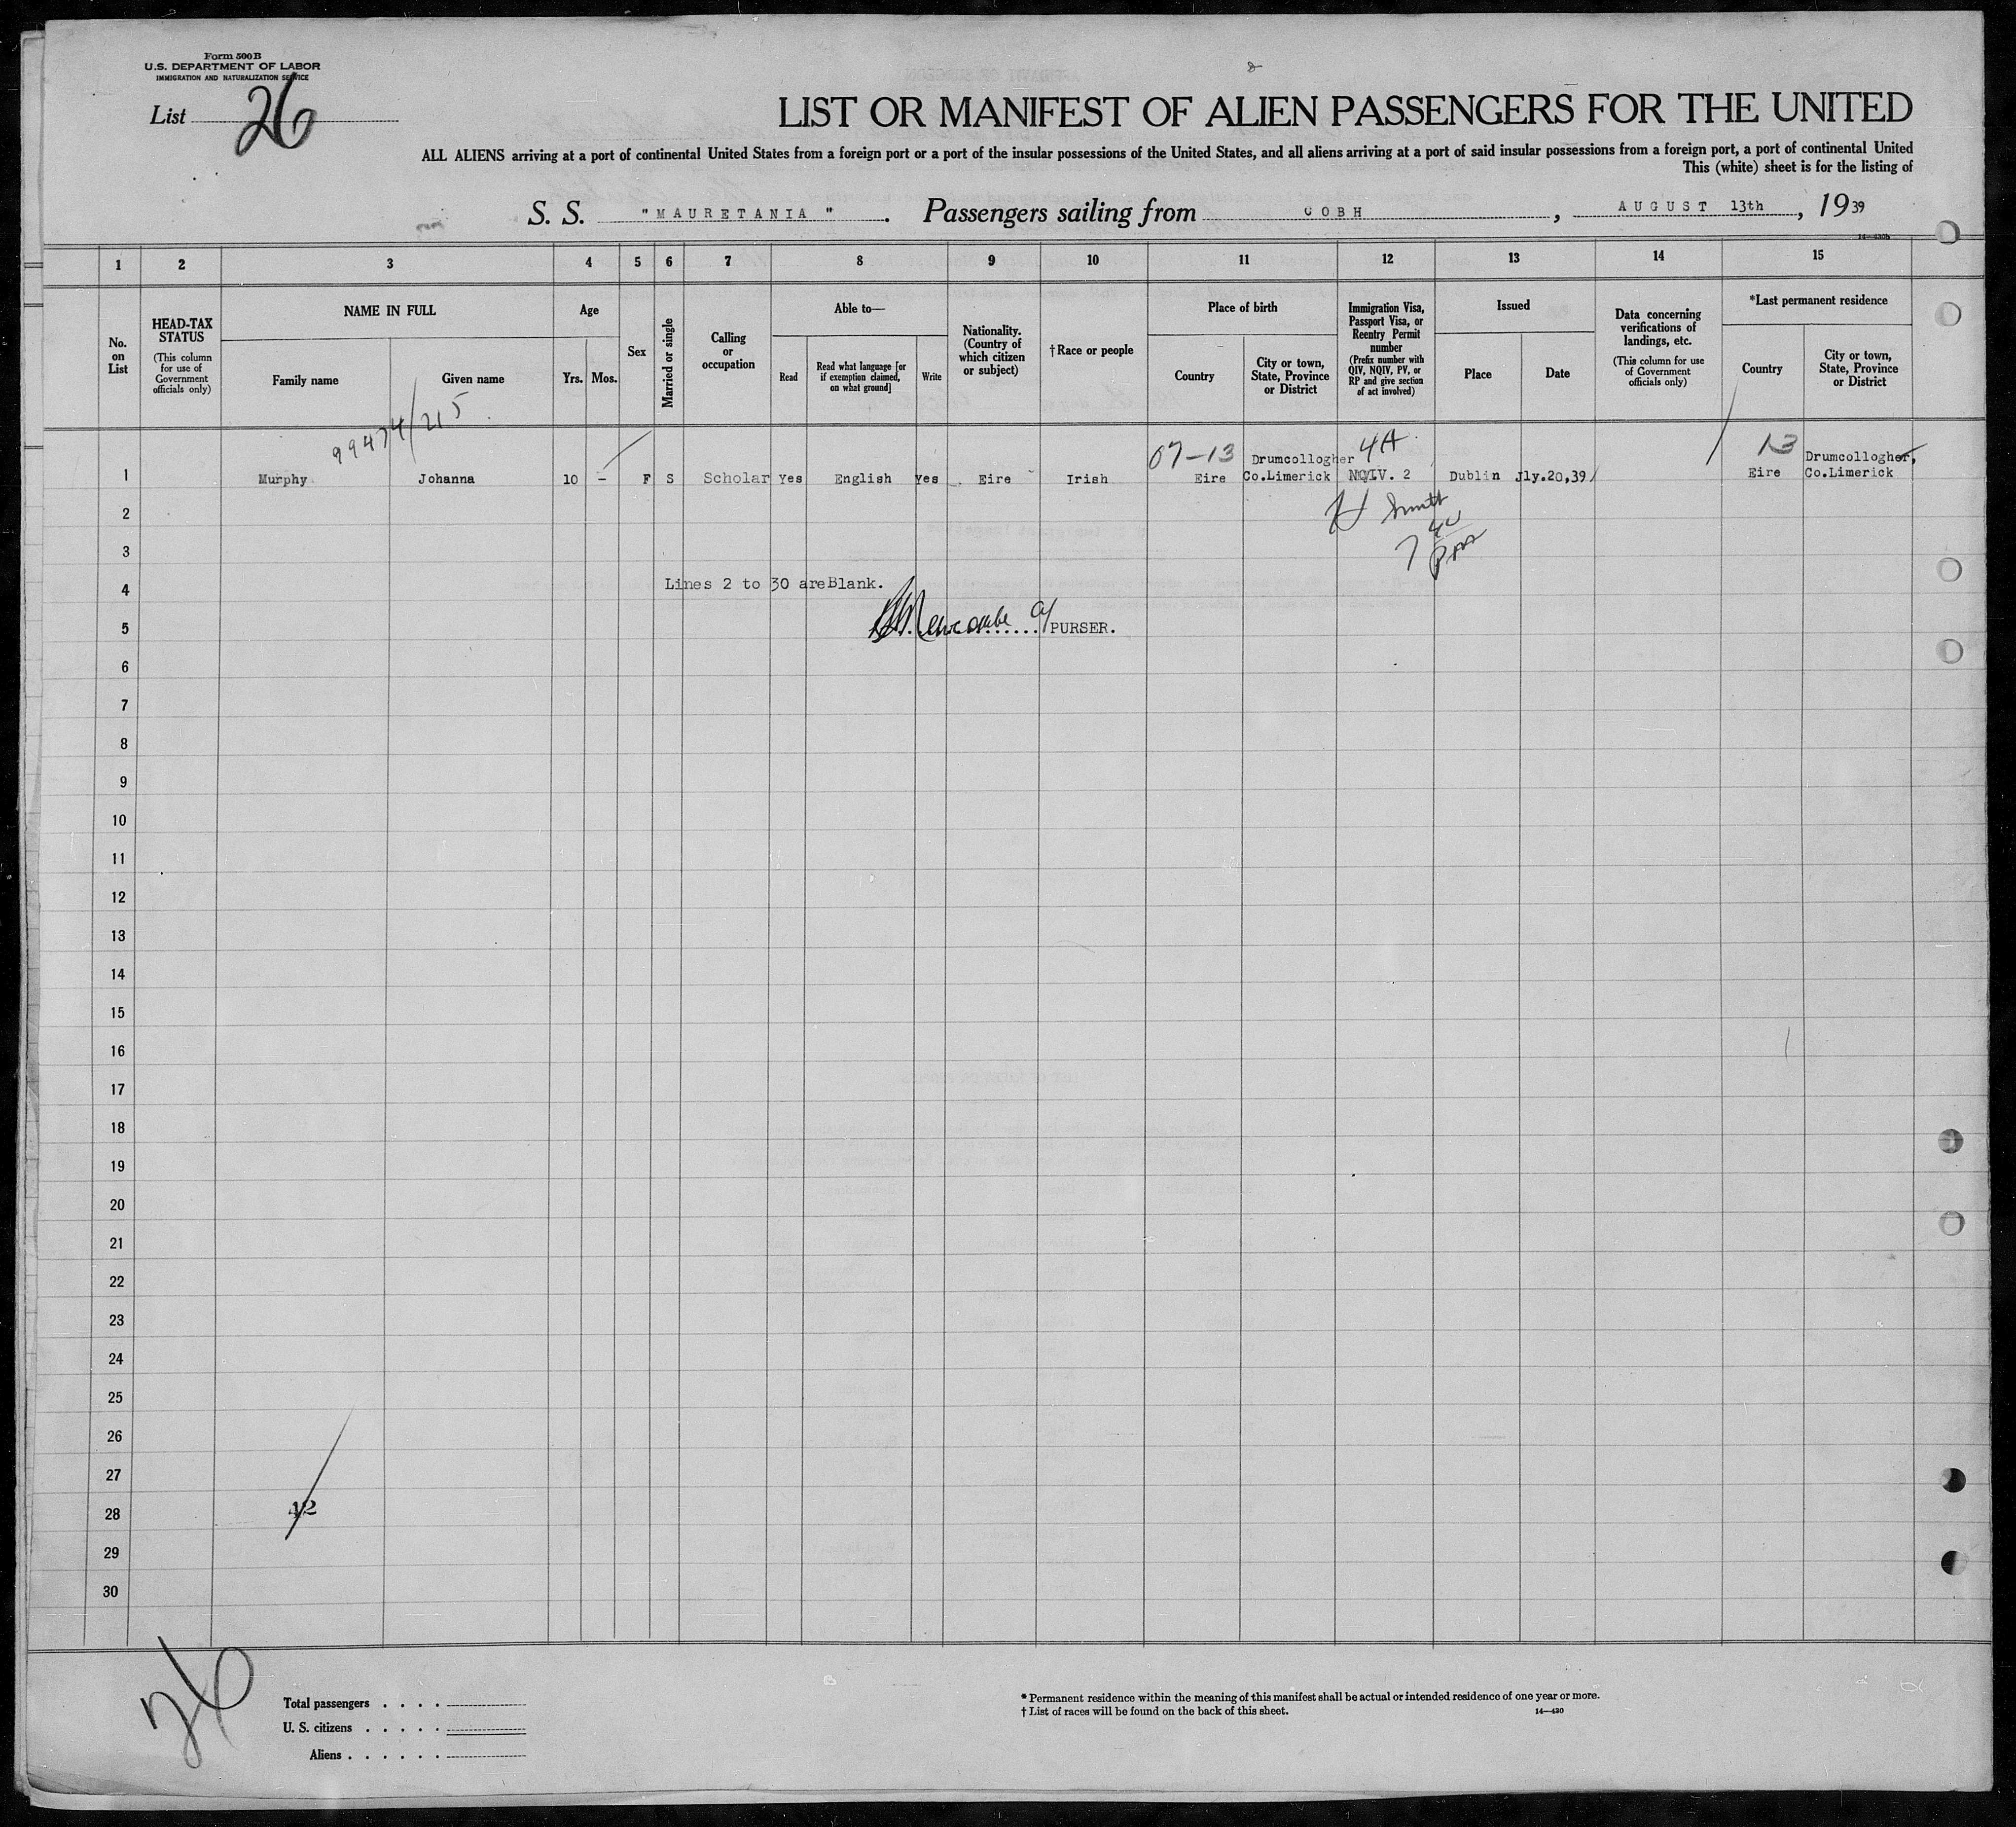 Form 500 B
U.S. DEPARTMENT OF LABOR
IMMIGRATION AND NATURALIZATION SERVICE
List 26
LIST OR MANIFEST OF ALIEN PASSENGERS FOR THE UNITED
ALL ALIENS arriving at a port of continental United States from a foreign port or a port of the insular possessions of the United States, and all aliens arriving at a port of said insular possessions from a foreign port, a port of continental United
This (white) sheet is for the listing of
S. S. "MAURETANIA". Passengers sailing from COBH, AUGUST 13th, 1939
14—430b
1 2 3 4 5 6 7 8 9 10 11 12 13 14 15
No. on List
HEAD-TAX STATUS
(This column for use of Government officials only)
NAME IN FULL
Family name
Given name
Age
Yrs. Mos.
Sex
Married or single
Calling or occupation
Able to—
Read
Read what language [or if exemption claimed, on what ground]
Write
Nationality. (Country of which citizen or subject)
†Race or people
Place of birth
Country
City or town, State, Province or District
Immigration Visa, Passport Visa, or Reentry Permit number
(Prefix number with QIV, NQIV, PV, or RP and give section of act involved)
Issued
Place
Date
Data concerning verifications of landings, etc.
(This column for use of Government officials only)
*Last permanent residence
Country
City or town, State, Province or District
99474/215
07-13
4A
13
Drumcollogher
Drumcollogher,
1 Murphy Johanna 10 - F S Scholar Yes English Yes Eire Irish Eire Co.Limerick NQIV. 2 Dublin Jly.20,39 Eire Co.Limerick
2
H Smith
3
7 40 pm
4
Lines 2 to 30 are Blank.
5
Newcombe PURSER.
6
7
8
9
10
11
12
13
14
15
16
17
18
19
20
21
22
23
24
25
26
27
28
12
29
30
26
Total passengers . . . .
U. S. citizens . . . . .
Aliens . . . . . .
* Permanent residence within the meaning of this manifest shall be actual or intended residence of one year or more.
† List of races will be found on the back of this sheet.
14—430